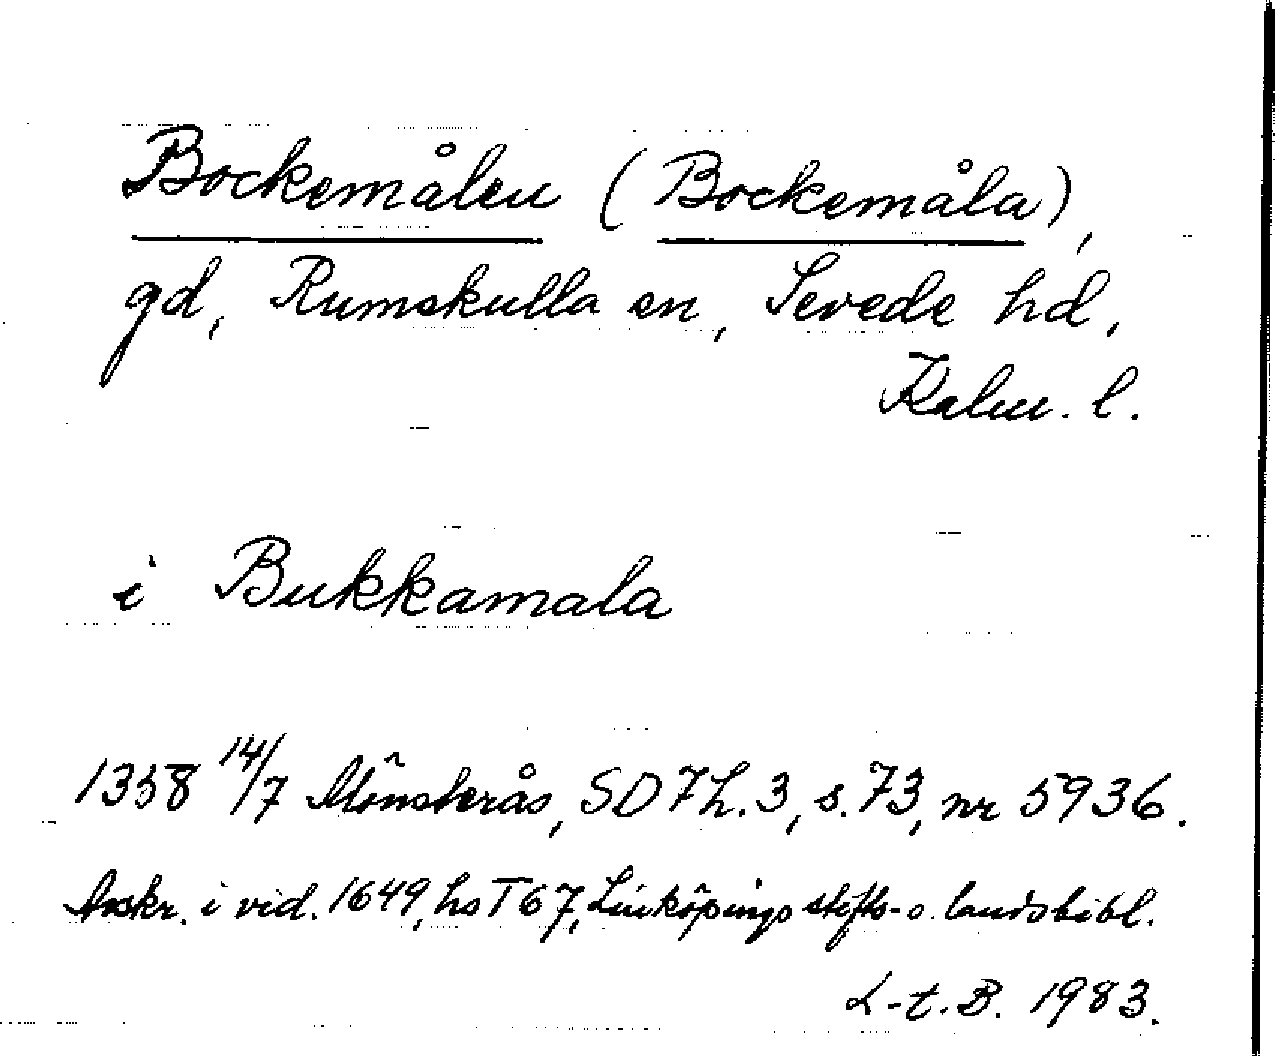 Bockemålen (Bockemåla),
gd, Rumskulla sn, Sevede hd,
Kalm. l.
i Bukkamala
1358 14/7 Mönsterås, SD 7 h. 3, s. 73, nr 5936.
Avskr. i vid. 1649, hs T 67, Linköpings stifts- o. landsbibl.
L-t. B. 1983.